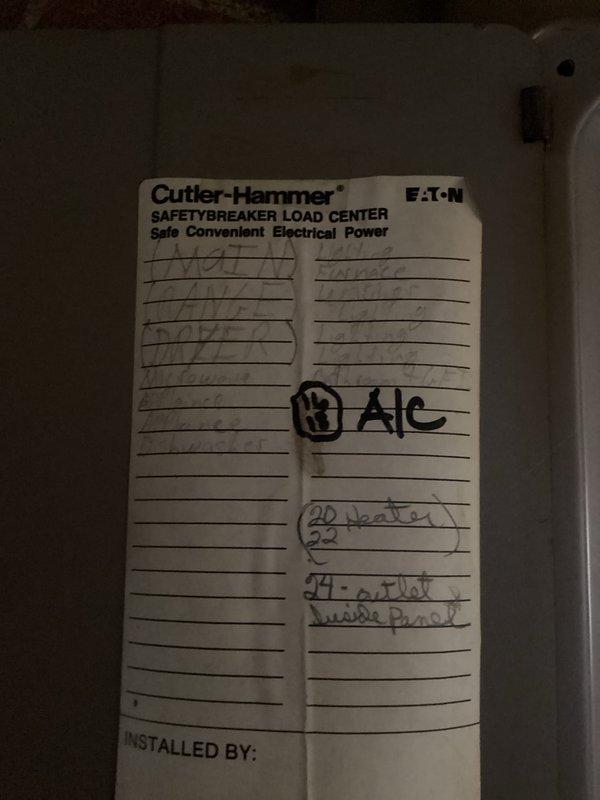 Cutler-Hammer® EATON
SAFETYBREAKER LOAD CENTER
Safe Convenient Electrical Power
(MAIN)
(RANGE)
(DRYER)
Microwave
Appliance
Appliance
Dishwasher
Lighting
Furnace
Washer
Lighting
Lighting
Lighting
16
18
A/C
(20 Heater)
22
24 - outlet
Inside Panel
INSTALLED BY: